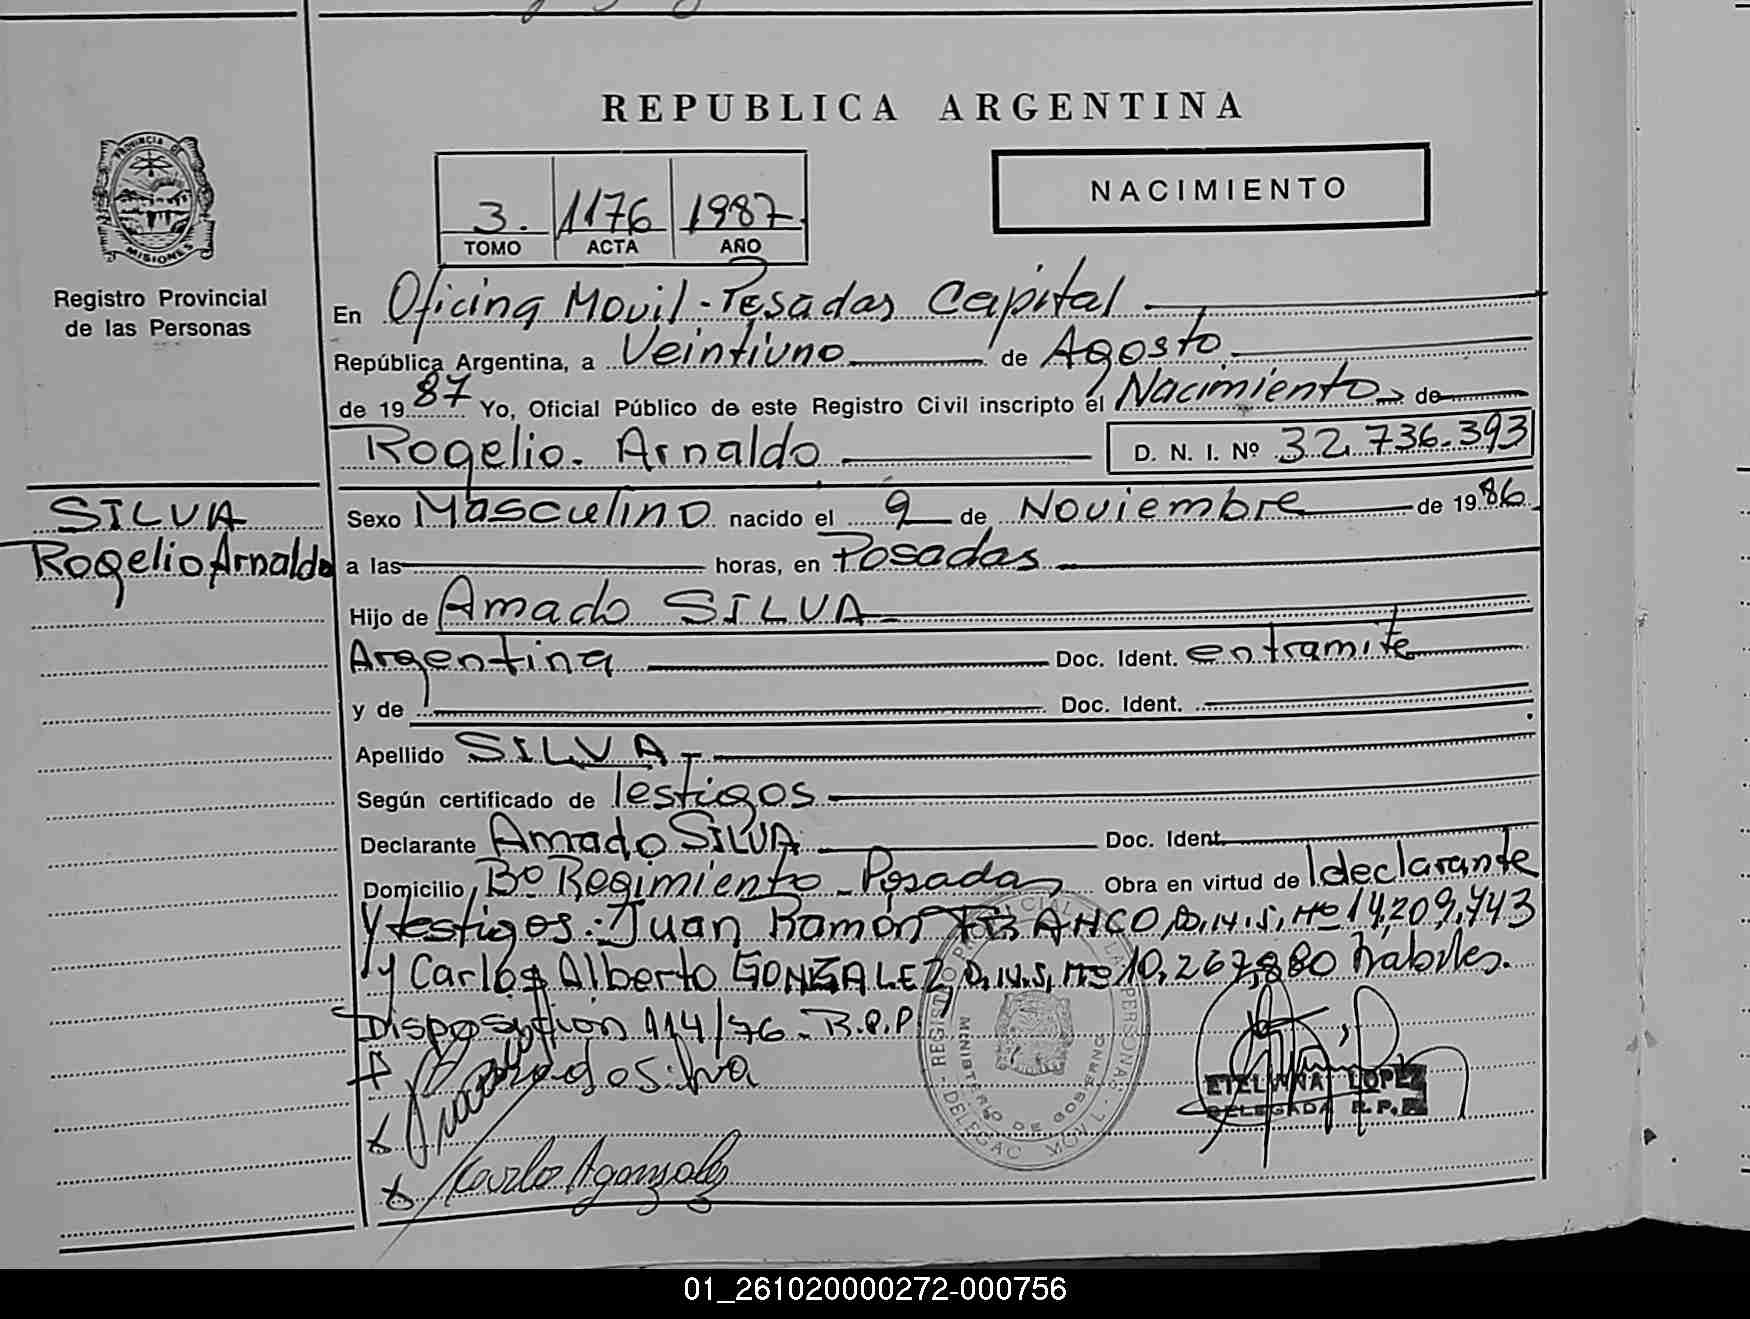 REPUBLICA ARGENTINA
PROVINCIA DE
MISIONES
Registro Provincial
de las Personas
3. 1176 1987
TOMO ACTA AÑO
NACIMIENTO
En Oficina Movil - Posadas Capital
República Argentina, a Veintiuno de Agosto
de 1987 Yo, Oficial Público de este Registro Civil inscripto el Nacimiento de
Rogelio. Arnaldo D. N. I. Nº 32.736.393
SILVA
Rogelio Arnaldo
Sexo Masculino nacido el 9 de Noviembre de 1986
a las horas, en Posadas
Hijo de Amado SILVA
Argentina Doc. Ident. en tramite
y de Doc. Ident.
Apellido SILVA
Según certificado de Testigos
Declarante Amado SILVA Doc. Ident.
Domicilio Bº Regimiento - Posadas Obra en virtud de declarante
y testigos: Juan Ramón D.N.I. Nº 14,209,743
y Carlos Alberto GONZALEZ D.N.I. Nº 10,267,880 habiles.
Disposition 114/76 - R.P.P
Amado Silva
Karlo A gonzalez
REGISTRO PROVINCIAL DE LAS PERSONAS
MINISTERIO DE GOBIERNO
DELEGAC MOVIL
ETELVINA LOPEZ
DELEGADA R.P.P.
01_261020000272-000756